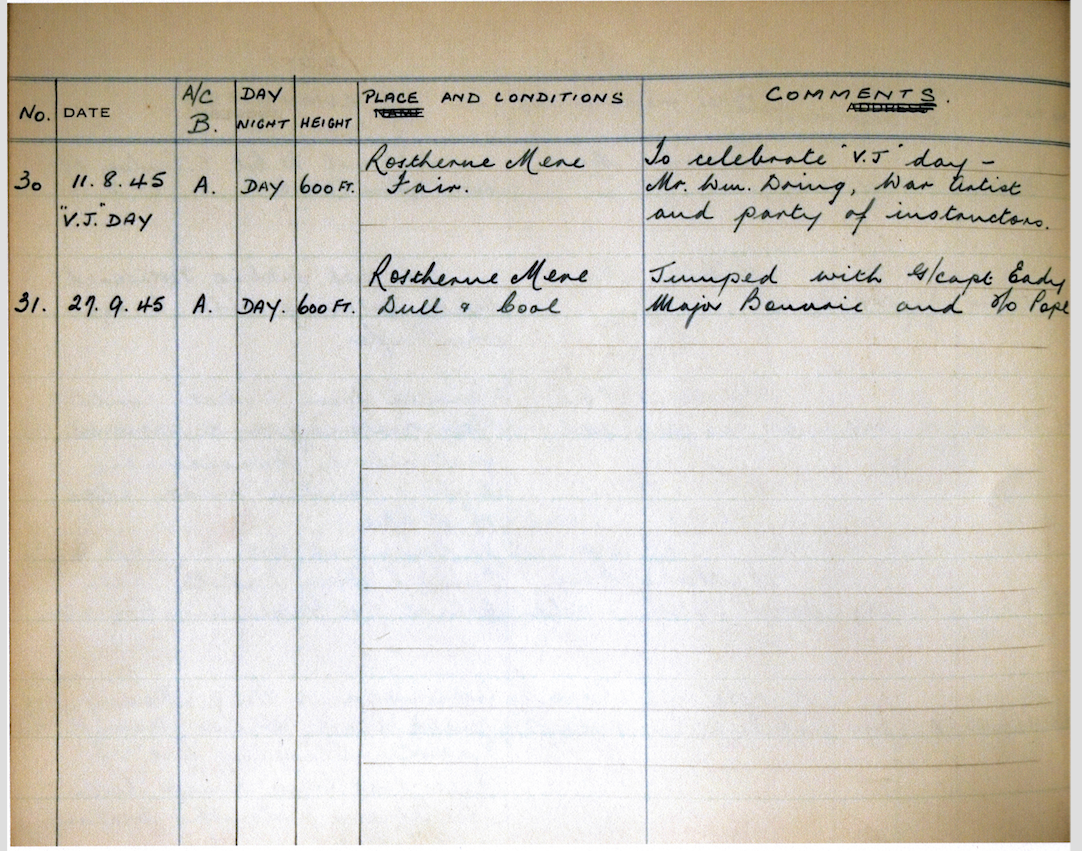 No. DATE A/C B. DAY NIGHT HEIGHT PLACE AND CONDITIONS COMMENTS.
Rostherne Mere To celebrate "V.J" day –
30 11.8.45 A. DAY 600 FT. Fair. Mr. Wm. Dring, War Artist
"V.J." DAY and party of instructors.
Rostherne Mere Jumped with G/Capt Eady
31. 27.9.45 A. DAY. 600 FT. Dull & Cool Major Bouverie and Pope